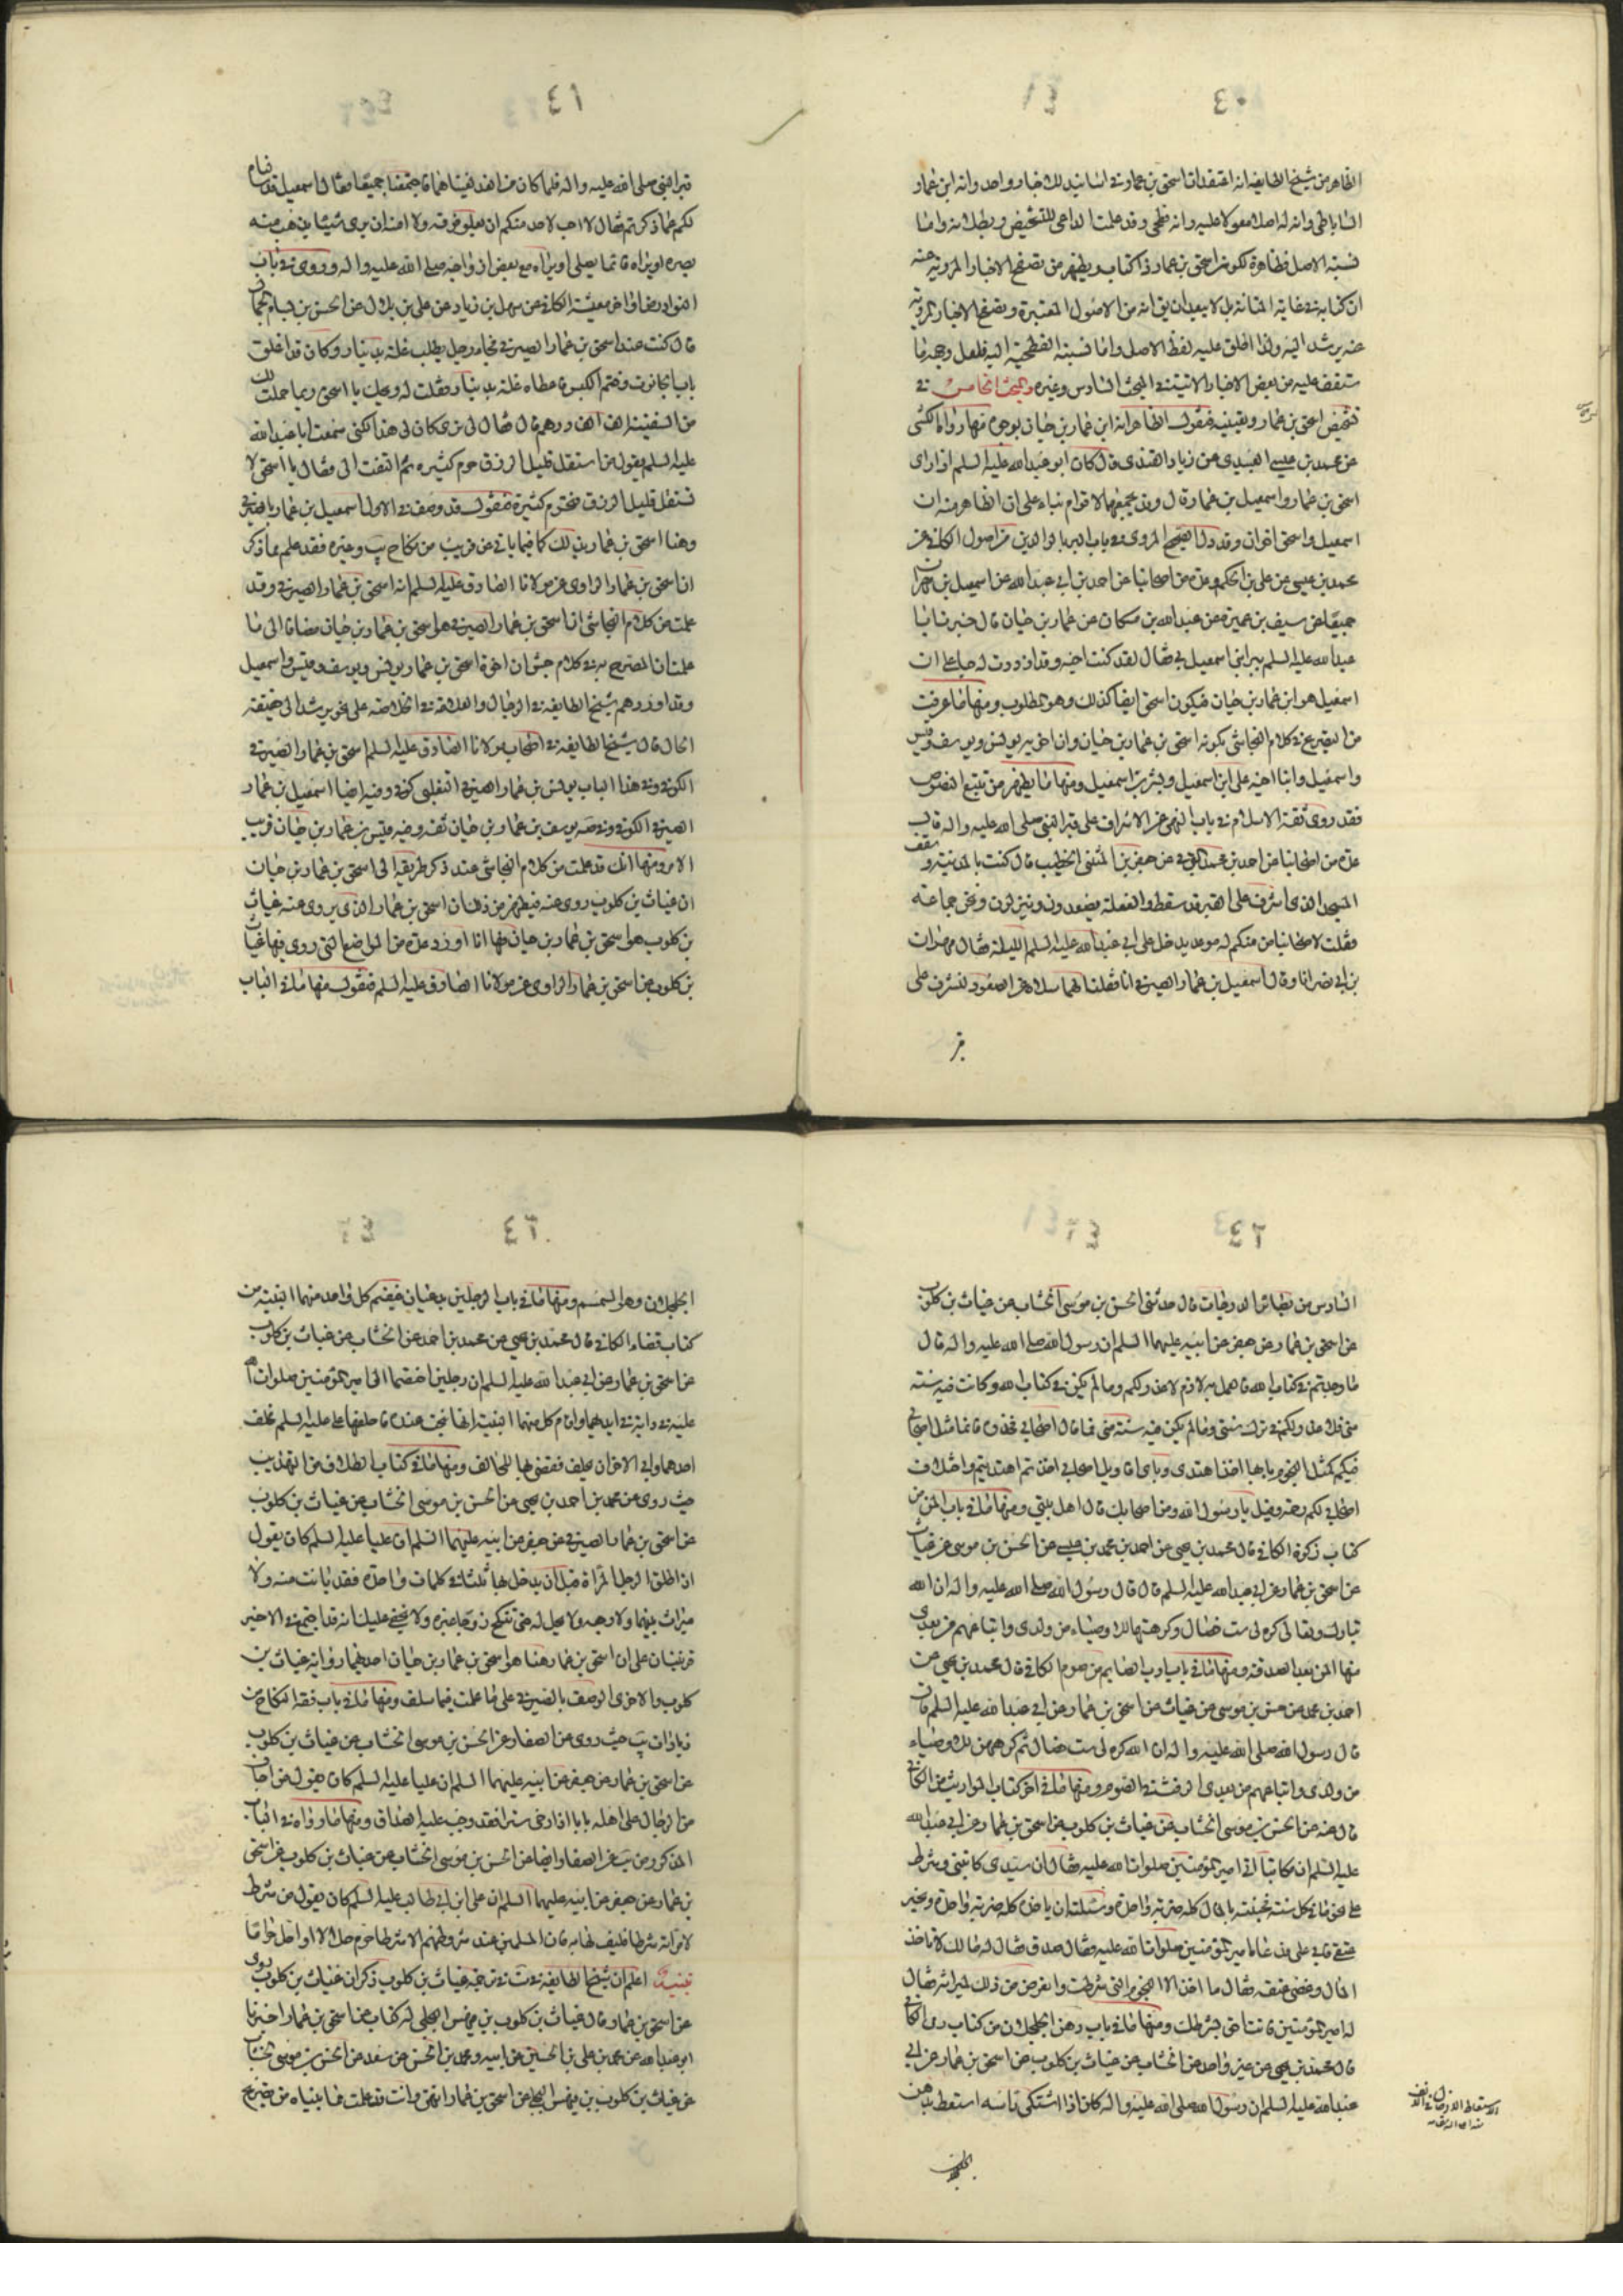 ٤٠
الظاهر من شيخ الطايفه انه اعتقد ان اسحق بن عمار في اسانيد الاخبار واحد وانه ابن عمار
الساباطى وانه له اصل معولا عليه وانه فطحى وقد علمت الداعى للتشخيص وبطلانه واما
نسبته الاصل فظاهرة لكون اسحق بن عمار ذا كتاب ويظهر من تصفح الاخبار المرويه عنه
ان كتابه في غاية المتانة بل لا يبعد ان يق انه من الاصول المعتبرة وتصفح الاخبار المرويه
عنه يرشد اليه ولذا اطلق عليه لفظ الاصل واما نسبته الفطحية اليه فلعل وجهه ما
ستقف عليه من بعض الاخبار الاتيته في المبحث السادس وغيره والمبحث الخامس في
تشخيص اسحق بن عمار وتعيينه فنقول الظاهر انه ابن عمار بن حيان بوجوه منها رواه الكشى
عن محمد بن عيسى العبيدى عن زياد القندى قال كان ابو عبد الله عليه السلم اذا راى
اسحق بن عمار واسمعيل بن عمار قال وقد يجمعهما لاقوام بناء على ان الظاهر منه ان
اسمعيل واسحق اخوان وقد دل الصحيح المروى في باب البر بالوالدين من اصول الكافى عن
محمد بن عيسى عن على بن الحكم وعدة من اصحابنا عن احمد بن ابى عبد الله عن اسمعيل بن مهران
جميعا عن سيف بن عميرة عن عبد الله بن مسكان عن عمار بن حيان قال خبرنا ابا
عبد الله عليه السلم ببر ابنى اسمعيل بى فقال لقد كنت احبه وقد ازددت له حبا على ان
اسمعيل هو ابن عمار بن حيان فيكون اسحق ايضا كذلك وهو المطلوب ومنها ما عرفت
من التصريح في كلام النجاشى بكونه اسحق بن عمار بن حيان وان اخويه يونس ويوسف وقيس
واسمعيل وابنا اخيه على ابن اسمعيل وبشر بن اسمعيل ومنها ما يظهر من تتبع النصوص
فقد روى ثقة الاسلام في باب النهى عن الاشراف على قبر النبى صلى الله عليه واله قال
عدة من اصحابنا عن احمد بن محمد البرقى عن جعفر بن المثنى الخطيب قال كنت بالمدينة وسقف
المسجد الذى يشرف على القبر قد سقط والفعلة يصعدون وينزلون ونحن جماعة
فقلت لاصحابنا من منكم له موعد يدخل على ابى عبد الله عليه السلم الليلة فقال مهران
بن ابى نصر انا وقال اسمعيل بن عمار الصيرفى انا فقلنا لهما سلاه عن الصعود لنشرف على
قبر
٤١
قبر النبى صلى الله عليه واله فلما كان من الغد لقيناهما فاجتمعنا جميعا فقال اسمعيل قد سالناه
لكم عما ذكرتم فقال لا احب لاحد منكم ان يعلو فوقه ولا امنه ان يرى شيئا يذهب منه
بصره او يراه قائما يصلى او يراه مع بعض ازواجه صلى الله عليه واله وروى في باب
النوادر في اواخر معيشة الكافى عن سهل بن زياد عن على بن بلال عن الحسن بن بسام الجمال
قال كنت عند اسحق بن عمار الصيرفى فجاء رجل يطلب غلة بدينار وكان قد اغلق
باب الحانوت وختم الكيس فاعطاه غلة بدينار فقلت له ويحك يا اسحق ربما حملت لك
من السفينة الف الف درهم قال فقال لى ترى كان لى هذا لكنى سمعت ابا عبد الله
عليه السلم يقول من استقل قليل الرزق حرم كثيره ثم التفت الى فقال يا اسحق لا
تستقل قليل الرزق فتحرم كثيره فنقول قد وصف في الاول اسمعيل بن عمار بالصيرفى
وهنا اسحق بن عمار بذلك كما فيما ياتى عن قريب من نكاح يب وغيره فقد علم مما ذكر
ان اسحق بن عمار الراوى عن مولانا الصادق عليه السلم انه اسحق بن عمار الصيرفى وقد
علمت من كلام النجاشى ان اسحق بن عمار الصيرفى هو اسحق بن عمار بن حيان مضافا الى ما
علمت ان المصرح به في كلام جش ان اخوة اسحق بن عمار يونس ويوسف وقيس واسمعيل
وقد اوردهم شيخ الطايفه في الرجال والعلامة في الخلاصه على نحو يرشد الى حقيقة
الحال قال شيخ الطايفه في اصحاب مولانا الصادق عليه السلم اسحق بن عمار الصيرفى
الكوفى وفي هذا الباب يونس بن عمار الصيرفى التغلبى كوفى وفيه ايضا اسمعيل بن عمار
الصيرفى الكوفى وفي صه يوسف بن عمار بن حيان ثقه وفيه قيس بن عمار بن حيان قريب
الامر ومنها انك قد علمت من كلام النجاشى عند ذكر طريقه الى اسحق بن عمار بن حيان
ان غياث بن كلوب روى عنه فيظهر من ذلك ان اسحق بن عمار الذى يروى عنه غياث
بن كلوب هو اسحق بن عمار بن حيان فها انا اورد عدة من المواضع التى روى فيها غياث
بن كلوب عن اسحق بن عمار الراوى عن مولانا الصادق عليه السلم فنقول منها ما في الباب
٤٢
السادس من بصائر الدرجات قال حدثنى الحسن بن موسى الخشاب عن غياث بن كلوب
عن اسحق بن عمار عن جعفر عن ابيه عليهما السلم ان رسول الله صلى الله عليه واله قال
ما وجدتم في كتاب الله فالعمل به لازم لا عذر لكم وما لم يكن في كتاب الله وكانت فيه سنة
منى فلا عذر لكم في ترك سنتى وما لم يكن فيه سنة منى فما قال اصحابى فخذوه فانما مثل اصحابى
فيكم كمثل النجوم بايها اخذ اهتدى وباى اقاويل اصحابى اخذتم اهتديتم واختلاف
اصحابى لكم رحمة وقيل يا رسول الله ومن اصحابك قال اهل بيتى ومنها ما في باب المن من
كتاب زكوة الكافى قال محمد بن يحيى عن احمد بن محمد بن عيسى عن الحسن بن موسى عن غياث
عن اسحق بن عمار عن ابى عبد الله عليه السلم قال قال رسول الله صلى الله عليه واله ان الله
تبارك وتعالى كره لى ست خصال وكرهتها للاوصياء من ولدى واتباعهم من بعدى
منها المن بعد الصدقة ومنها ما في باب ادب الصايم من صوم الكافى قال محمد بن يحيى عن
احمد بن محمد عن حسن بن موسى عن غياث عن اسحق بن عمار عن ابى عبد الله عليه السلم قال
قال رسول الله صلى الله عليه واله ان الله كره لى ست خصال ثم كرههن للاوصياء
من ولدى واتباعهم من بعدى الرفث في الصوم ومنها ما في اخر كتاب المواريث من الكافى
قال عنه عن الحسن بن موسى الخشاب عن غياث بن كلوب عن اسحق بن عمار عن ابى عبد الله
عليه السلم ان مكاتبا اتى امير المؤمنين صلوات الله عليه فقال ان سيدى كاتبنى وشرط
على نجوما في كل سنة فجئته بالمال كله ضربة واحدة وسئلته ان ياخذه كله ضربة واحدة ويجيز
عتقى فابى على فدعاه امير المؤمنين صلوات الله عليه فقال صدق فقال له مالك لا تاخذ
المال وتمضى عتقه فقال ما اخذ الا النجوم التى شرطت واتعرض من ذلك لميراثه فقال
له امير المؤمنين فانت احق بشرطك ومنها ما في باب دهن الجلجلان من كتاب زى الكافى
قال محمد بن يحيى عن غير واحد عن الخشاب عن غياث بن كلوب عن اسحق بن عمار عن ابى
عبد الله عليه السلم ان رسول الله صلى الله عليه واله كان اذا اشتكى راسه استعط بدهن
الجلجلان
٤٣
الجلجلان وهو السمسم ومنها ما في باب الرجلين يدعيان فيقيم كل واحد منهما البينة من
كتاب قضاء الكافى قال محمد بن يحيى عن محمد بن احمد عن الخشاب عن غياث بن كلوب
عن اسحق بن عمار عن ابى عبد الله عليه السلم ان رجلين اختصما الى امير المؤمنين صلوات الله
عليه في دابة في ايديهما واقام كل منهما البينة انها نتجت عنده فاحلفهما على عليه السلم فحلف
احدهما وابى الاخر ان يحلف فقضى بها للحالف ومنها ما في كتاب الطلاق من التهذيب
حيث روى عن محمد بن احمد بن يحيى عن الحسن بن موسى الخشاب عن غياث بن كلوب
عن اسحق بن عمار الصيرفى عن جعفر عن ابيه عليهما السلم ان عليا عليه السلم كان يقول
اذا طلق الرجل المراة قبل ان يدخل بها ثلثا في كلمة واحدة فقد بانت منه ولا
ميراث بينهما ولا رجعة ولا يحل له حتى تنكح زوجا غيره ولا يخفى عليك انه قد اجتمع في الاخير
قرينتان على ان اسحق بن عمار هنا هو اسحق بن عمار بن حيان احدهما رواية غياث بن
كلوب والاخرى الوصف بالصيرفى على ما علمت فيما سلف ومنها ما في باب فقه النكاح من
زيادات يب حيث روى عن الصفار عن الحسن بن موسى الخشاب عن غياث بن كلوب
عن اسحق بن عمار عن جعفر عن ابيه عليهما السلم ان عليا عليه السلم كان يقول من اجاف
من الرجال على اهله بابا او ارخى سترا فقد وجب عليه الصداق ومنها ما رواه في الباب
المذكور من يب عن الصفار ايضا عن الحسن بن موسى الخشاب عن غياث بن كلوب عن اسحق
بن عمار عن جعفر عن ابيه عليهما السلم ان على ابن ابى طالب عليه السلم كان يقول من شرط
لامراته شرطا فليف لها به فان المسلمين عند شروطهم الا شرطا حرم حلالا او احل حراما
تنبيه اعلم ان شيخ الطايفه في ست في ترجمة غياث بن كلوب ذكر ان غياث بن كلوب روى
عن اسحق بن عمار قال غياث بن كلوب بن فيهس البجلى له كتاب عن اسحق بن عمار اخبرنا
ابو عبد الله عن محمد بن على بن الحسين عن ابيه ومحمد بن الحسن عن سعد عن الحسن بن موسى الخشاب
عن غياث بن كلوب بن فيهس البجلى عن اسحق بن عمار انتهى وانت قد علمت مما بيناه من تصريح